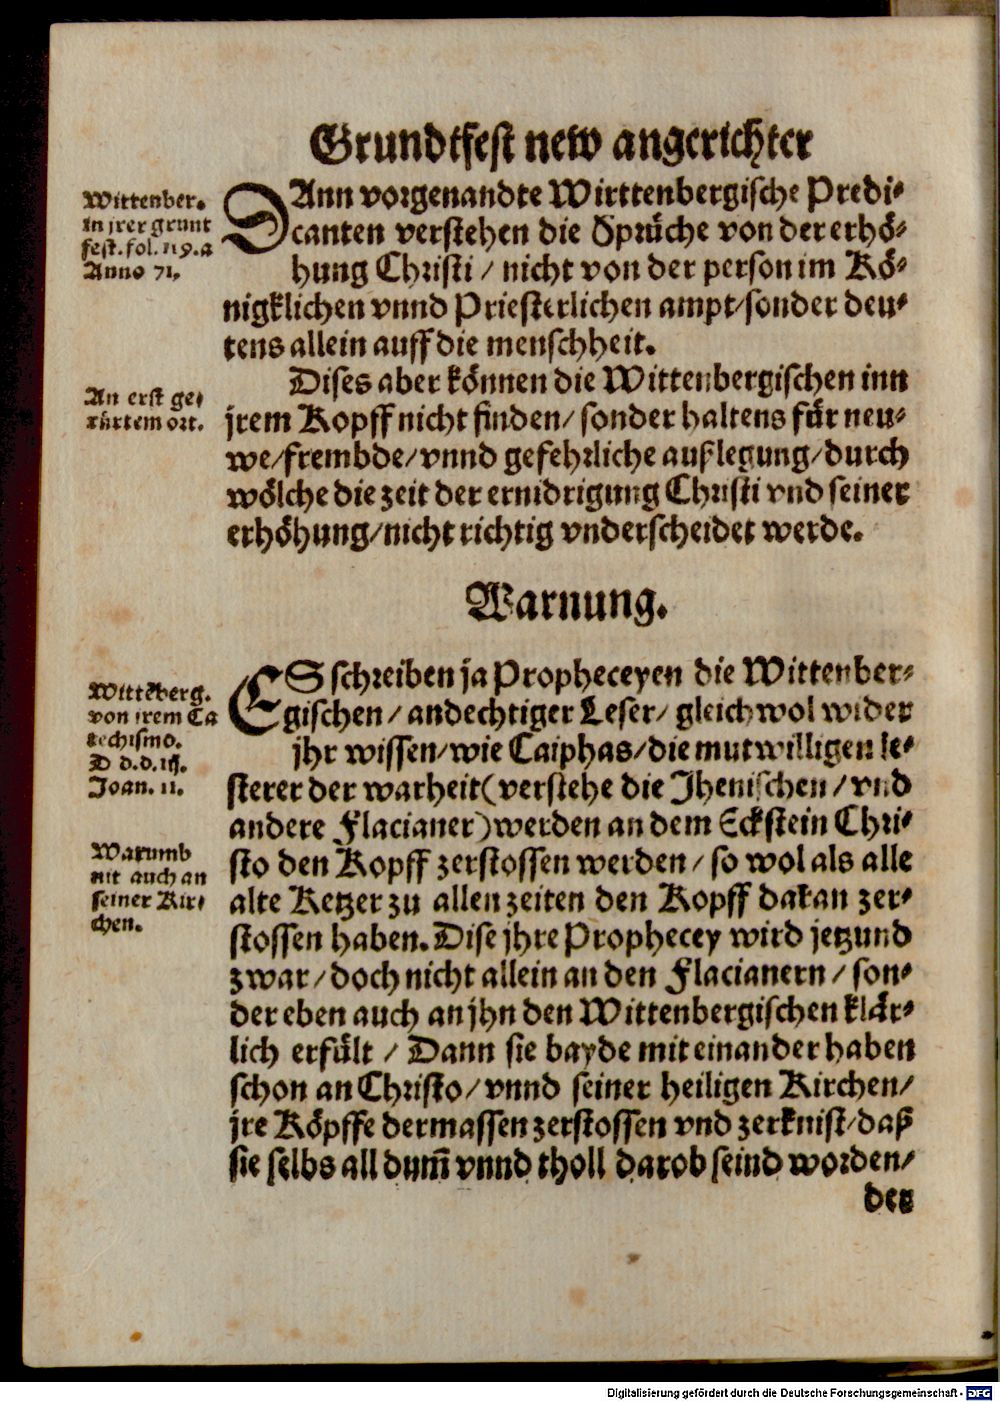 Grundtfest new angerichter
Wittenber.
in jrer grunt
fest. fol. 119. a
Anno 71.
DAnn vorgenandte Wirttenbergische Predi-
canten verstehen die Sprüche von der erhö-
hung Christi / nicht von der person im Kö-
nigklichen vnnd Priesterlichen ampt/sonder deu-
tens allein auff die menschheit.
An erst ge-
rürtem ort.
Dises aber können die Wittenbergischen inn
jrem Kopff nicht finden/ sonder haltens für neu-
we/frembde/vnnd gefehrliche außlegung/durch
wölche die zeit der ernidrigung Christi vnd seiner
erhöhung/nicht richtig vnderscheidet werde.
Warnung.
Wittēberg.
von jrem Ca
techismo.
D d.d. iij.
Joan. 11.
Warumb
nit auch an
seiner Kir-
chen.
ES schreiben ja Propheceyen die Wittenber-
gischen/ andechtiger Leser/ gleichwol wider
jhr wissen/wie Caiphas/die mutwilligen le-
sterer der warheit(verstehe die Jhenischen / vnd
andere Flacianer)werden an dem Eckstein Chri-
sto den Kopff zerstossen werden/ so wol als alle
alte Ketzer zu allen zeiten den Kopff daran zer-
stossen haben. Dise jhre Prophecey wird jetzund
zwar/doch nicht allein an den Flacianern/ son-
der eben auch an jhn den Wittenbergischen klär-
lich erfült / Dann sie bayde mit einander haben
schon an Christo/ vnnd seiner heiligen Kirchen/
jre Köpffe dermassen zerstossen vnd zerknist/daß
sie selbs all dum̄ vnnd tholl darob seind worden/
der
Digitalisierung gefördert durch die Deutsche Forschungsgemeinschaft - DFG